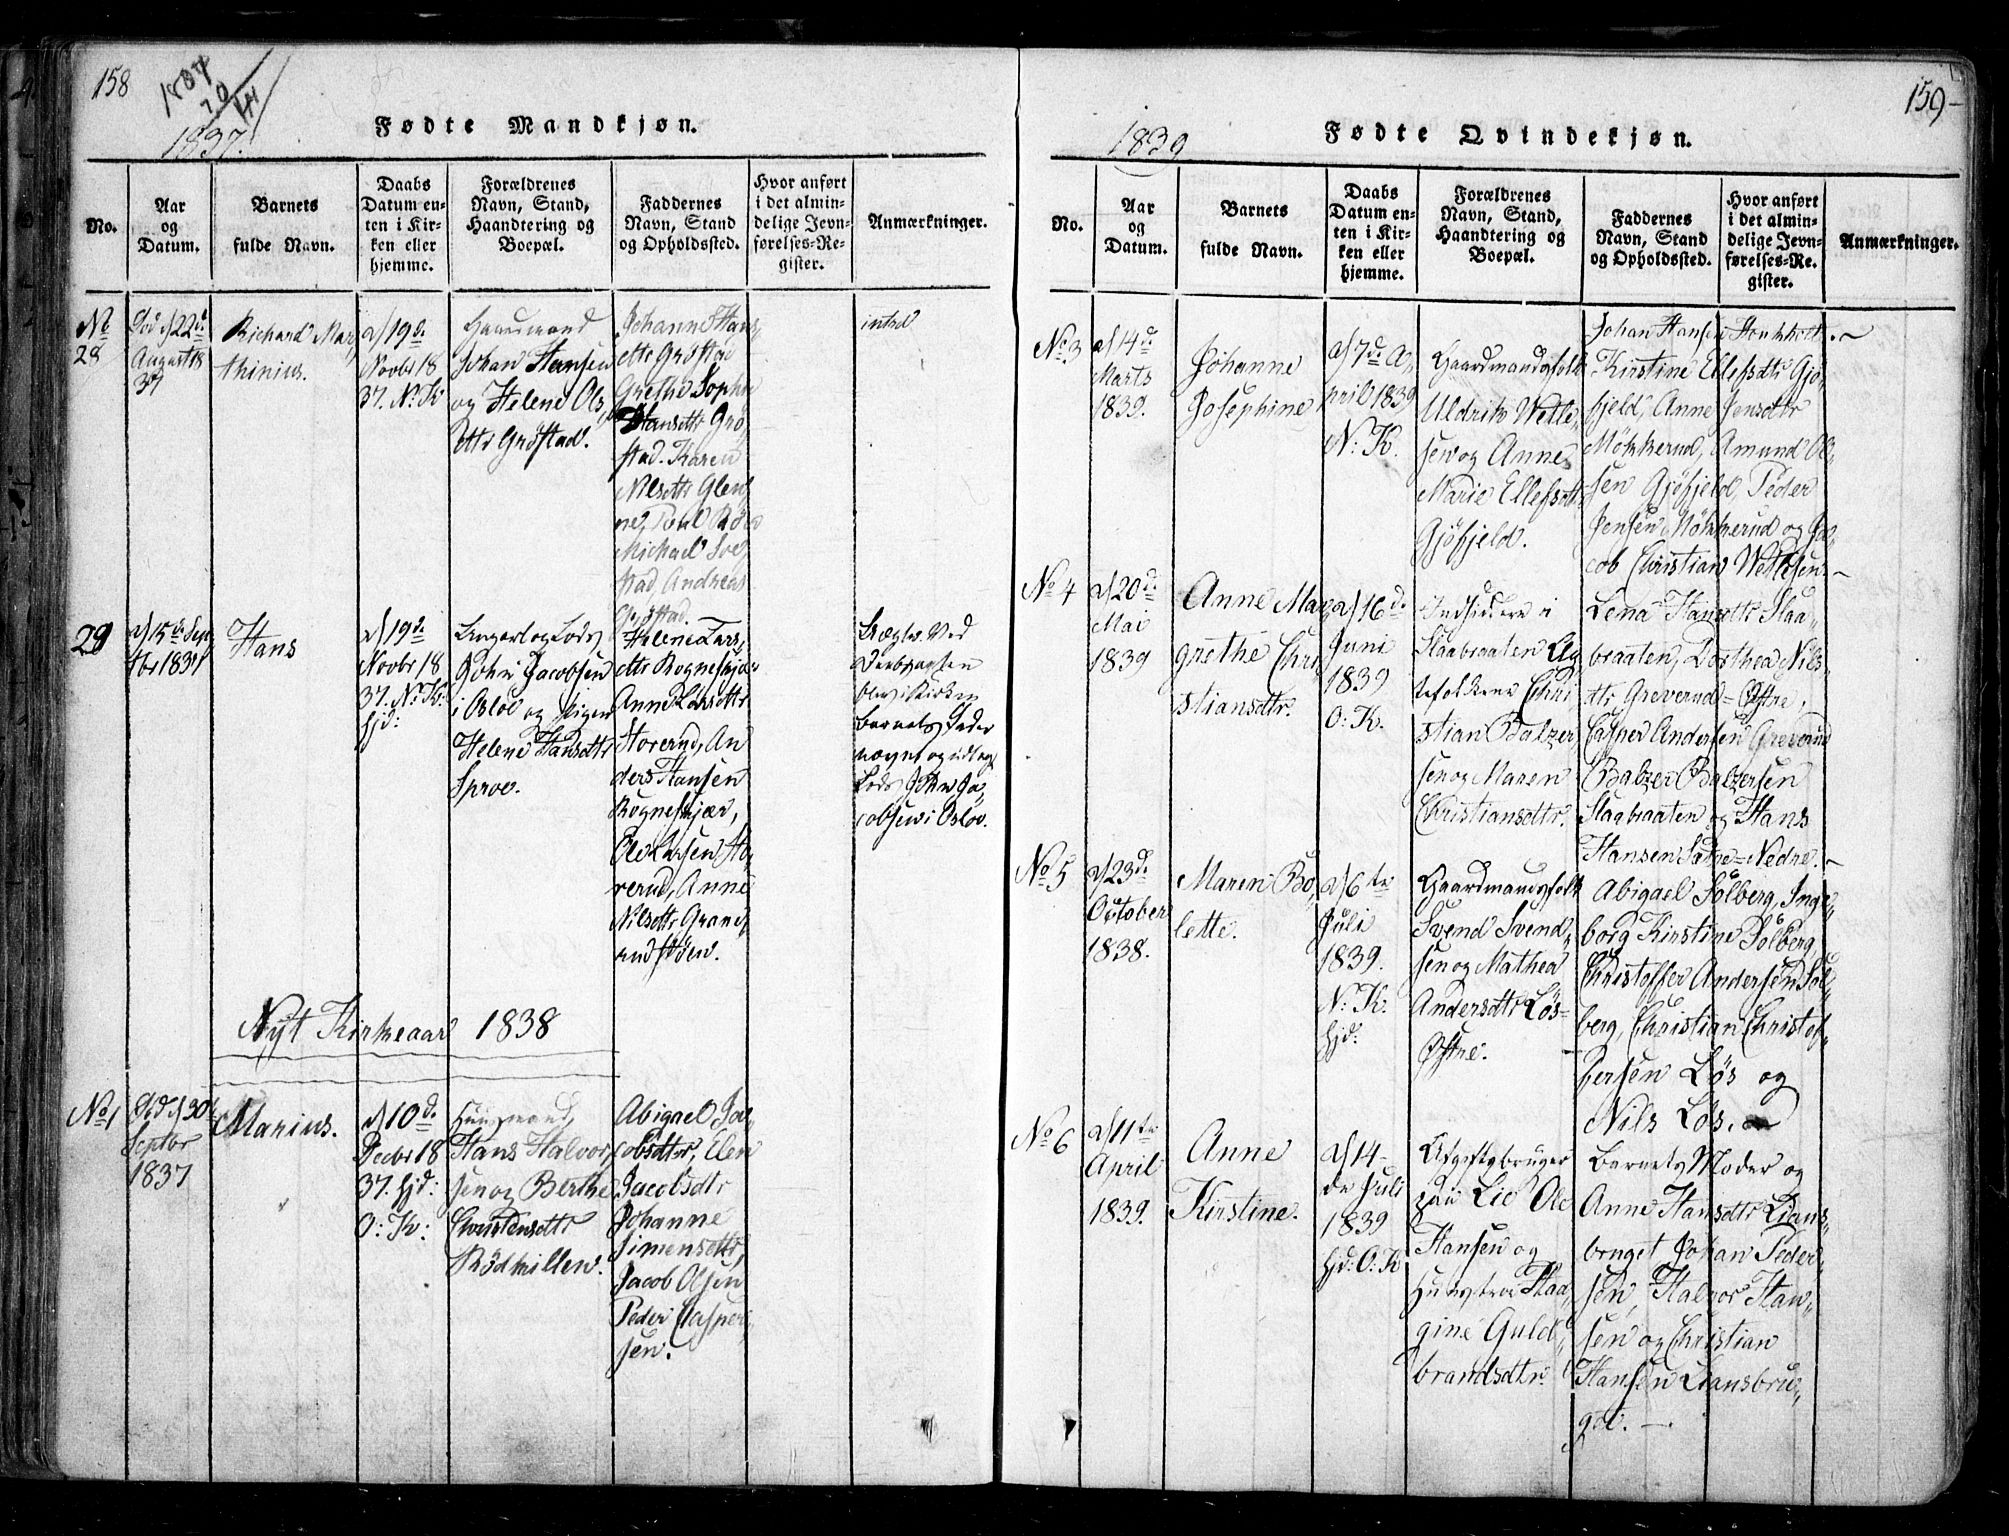 158
1837.
Fødte Mandkjøn.
No.
Aar og Datum.
Barnets fulde Navn.
Daabs Datum enten i Kirken eller hjemme.
Forældrenes Navn, Stand, Haandtering og Boepæl.
Faddernes Navn, Stand og Opholdssted.
Hvor anført i det almindelige Jevnførelses-Register.
Anmærkninger.
No
28
22d
August 18
37
Richard Mar,,
thinius.
d/19d.
Novbr 18
37. N: K
Gaardmand
Johan Hansen
og Helene Ols,,
dttr Grøstad.
Johanne Hans,,
dttr Grøstad
Grethe Sophie
Hansdttr Grø,,
stad. Karen
Nilsdttr Glen,,
ne, Poul
Michael
stad, Andreas
Grøstad.
intet
29
d/15de Sep,,
tbr 1837
Hans
d/19d.
Novbr 18
37. N: K:
hjd:
Ungkarl og Lods
John Jacobsen
i Osloe og Pigen
Helene Hansdttr
Sproe.
Helene Lars,,
dttr Rogneskjær
Anne Larsdttr
Horerud, An
ders Hansen
Rogneskjær,
Ole Larsen Ho,,
rerud, Anne
Nilsdttr Grand,,
rudsøen.
Uægte. Ved
Barnets Fader
nævnt og udlagt
Lods John Ja,,
cobsen i Osloe.
Nyt Kirkeaar 1838
No 1
Fød d/30
Septbr
1837
Marius.
d/10d.
Decbr 18
37. hjd:
O: K:
Huusmand,
Hans Halvor,,
sen og Berthe
Christensdttr
Rødkillen.
Abigael Ja,,
cobsdttr, Elen
Jacobsdtr
Johanne
Simensdttr,
Jacob Olsen
Peder Casper
sen.
159
1839
Fødte Qvindekjøn.
No.
Aar og Datum.
Barnets fulde Navn.
Daabs Datum enten i Kirken eller hjemme.
Forældrenes Navn, Stand, Haandtering og Boepæl.
Faddernes Navn, Stand og Opholdssted.
Hvor anført i det almindelige Jevnførelses-Re. gister.
Anmærkninger.
No. 3
d/14d
Marts
1839.
Johanne
Josephine
d/7d. A,,
pril 1839
N: K.
Gaardmandsfolk
Uldrik Wetle,,
sen og Anne
Marie Ellefsdttr
Gjøfjeld.
Johan Hansen
Kirstine Ellefsdtr Gjø,,
fjeld, Anne Jensdtr
Møkkerud, Amund Ol,,
sen Gjøfjeld, Peder
Jensen Møkkerud og Ja,,
cob Christian Wetlesen.
No 4
d/20d.
Mai
1839
Anne Mar,,
grethe Chri
stiansdtr.
d/16d.
Juni
1839
O: K.
Indsiddere i
Staabraaten Eg
tefolkene Chri
stian Balzer,,
sen og Maren
Christiansdttr.
Lena Hansdttr Staa,,
braaten, Dorthea Nils,,
dttr Greverud=Østre,
Casper Andersen Greverud
Balzer Balzersen
Staabraaten og Hans
Hansen Sætre=Nedre.
No 5
d/23d.
October
1838.
Maren Bo,,
lette.
d/6te
Juli
1839.
N: K:
hjd:
Gaardmandsfolk
Svend Svend,,
sen og Mathea
Andersdttr Løs=
Østre.
Abigael Solberg, Inge,,
borg Kirstine Solberg,
Christoffer Andersen Sol,,
berg, Christian Christof,,
fersen Løs og
Nils Løs.
No 6
d/11te
April
1839.
Anne
Kirstine.
d/14-
de Juli
1839
hjd: O: K
Afgiftsbruger
paa Lie Ole
Hansen og
Hustroe Haa,,
gine Guld,,
brandsdtr.
Barnets Moder og
Anne Hansdttr Lians,,
bruget Johan Peder,,
sen, Halvor Han,,
sen og Christian
Hansen Liansbru,,
get.